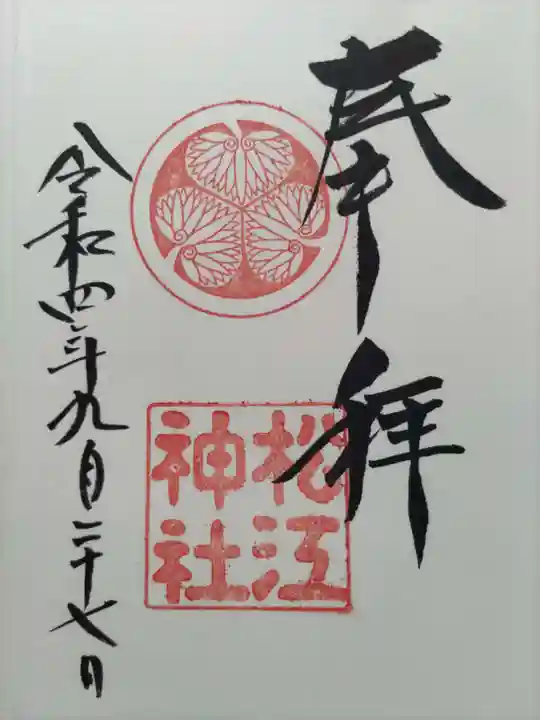 奉拝
松江
神社
令和四年九月二十七日